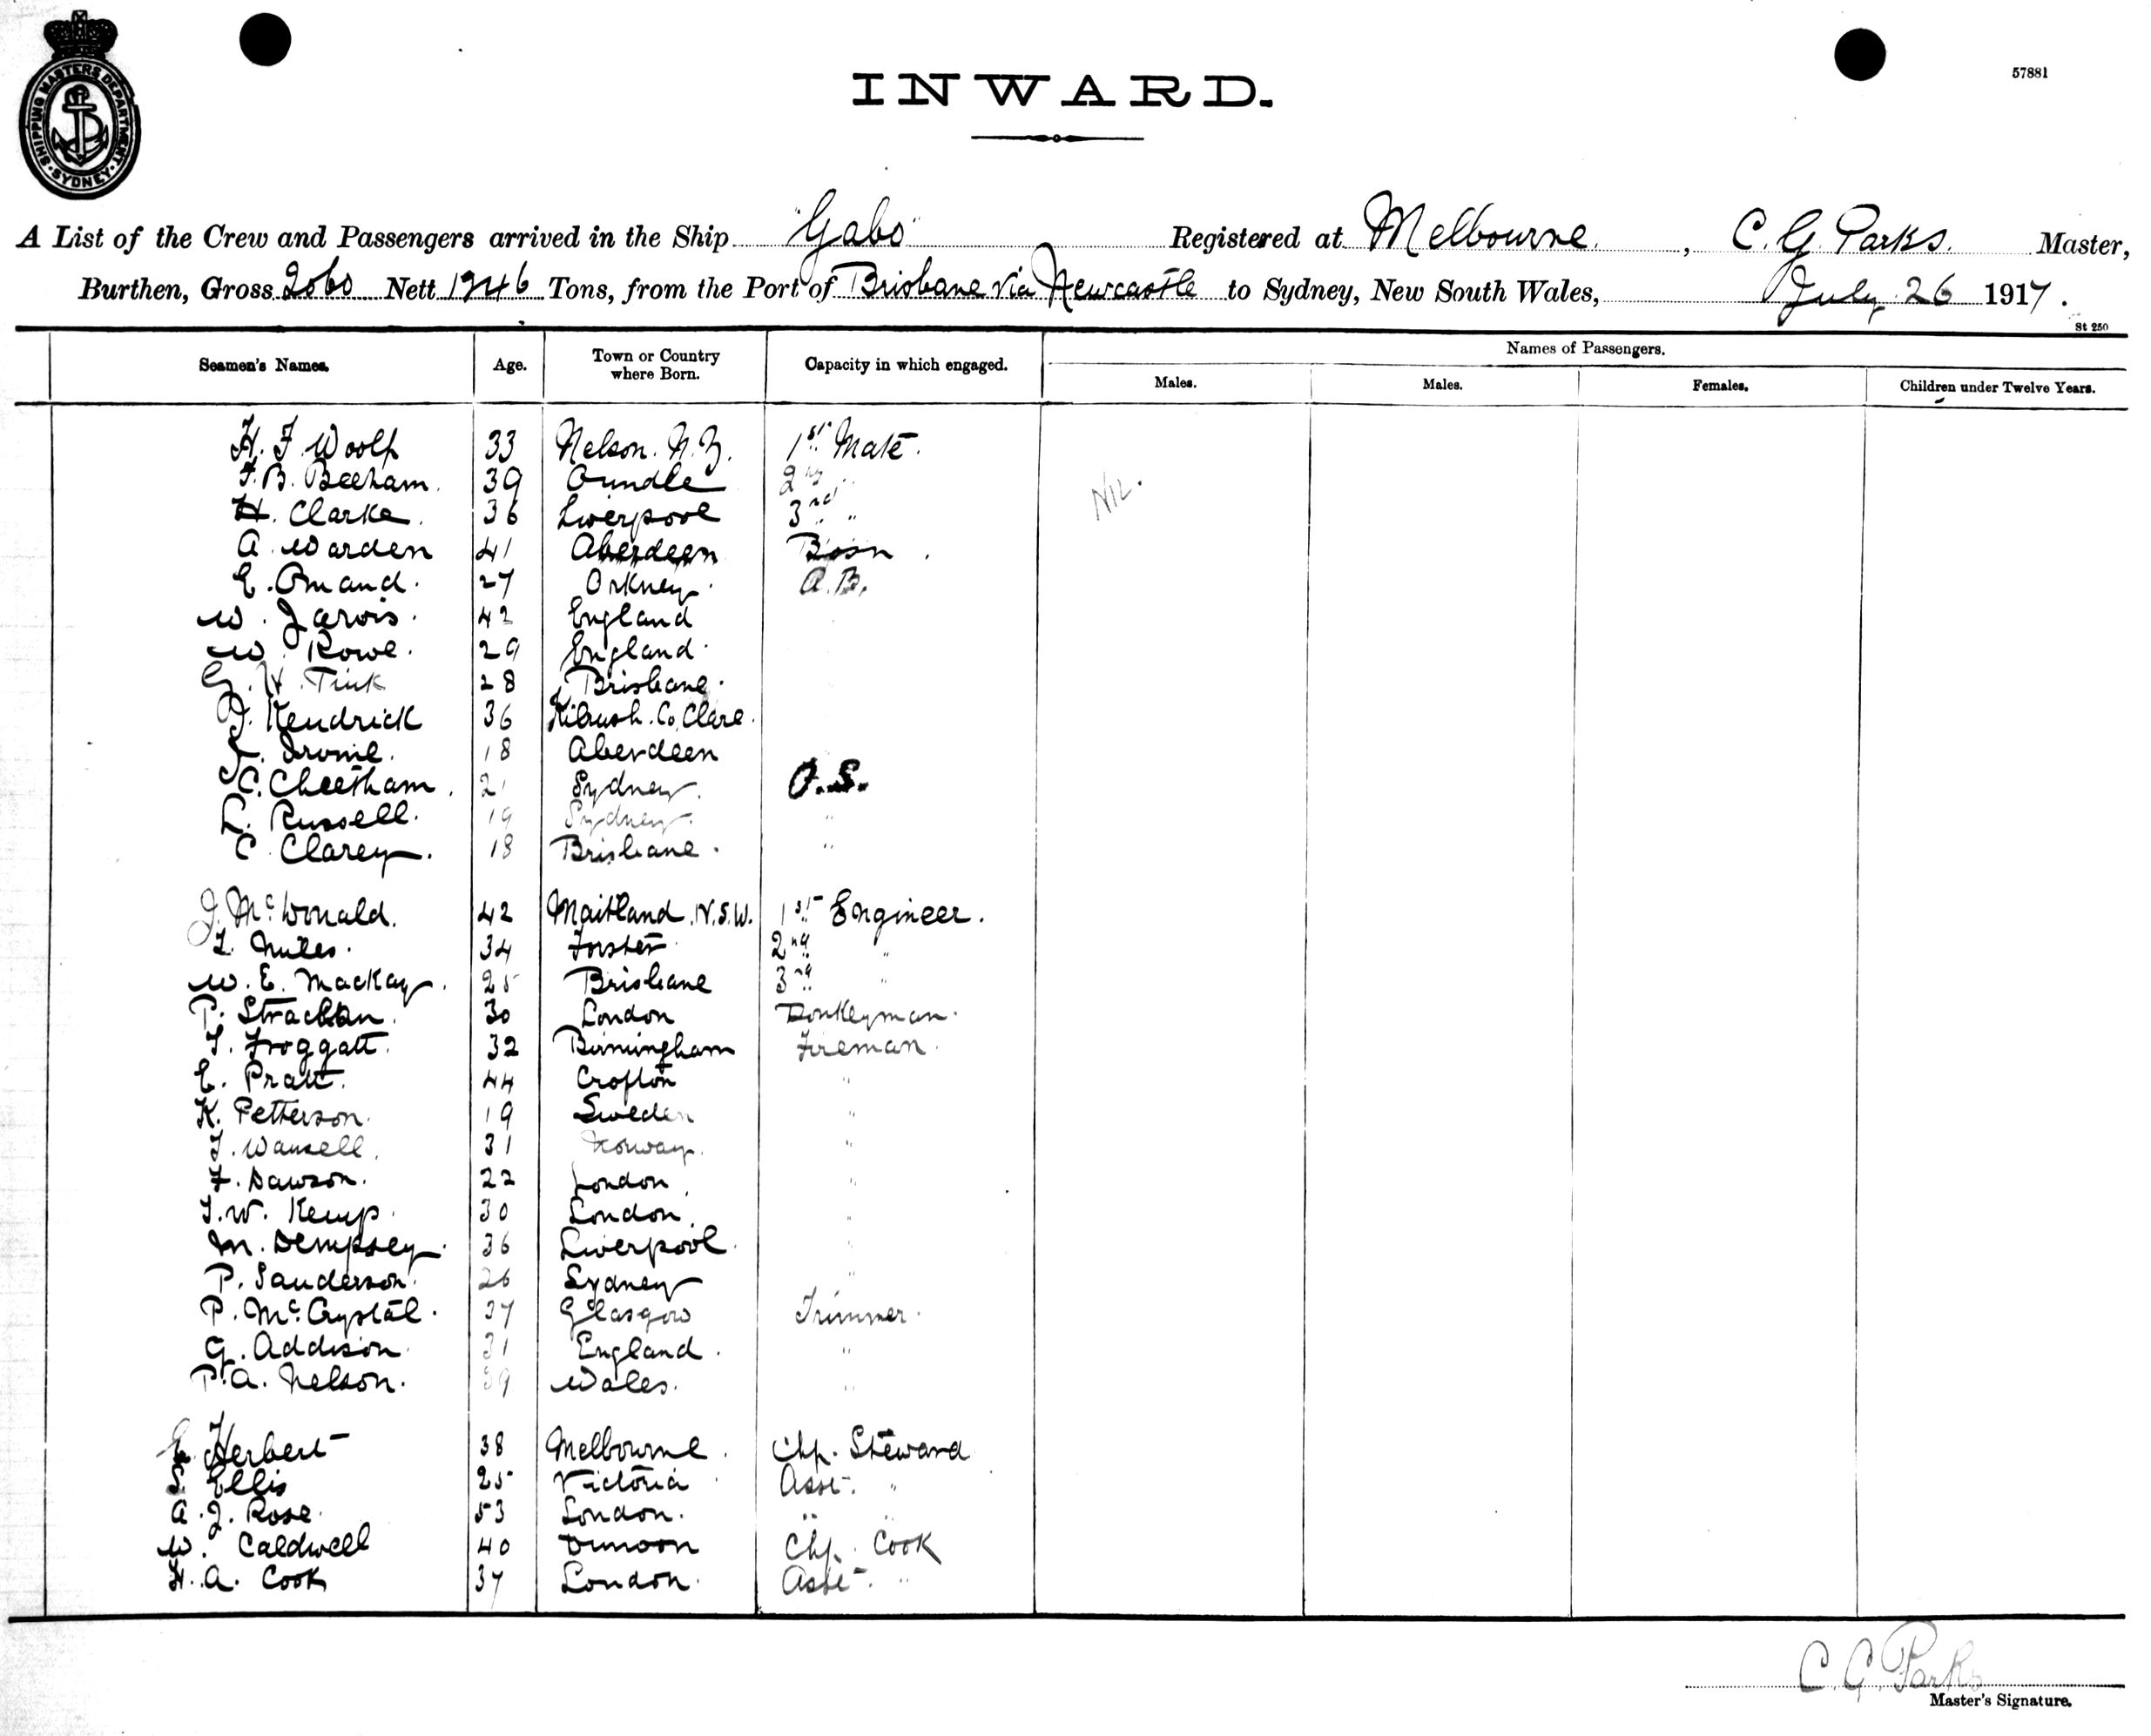 SHIPPING MASTERS DEPARTMENT · SYDNEY ·
57881
INWARD.
A List of the Crew and Passengers arrived in the Ship "Gabo" Registered at Melbourne, C. G. Parks. Master,
Burthen, Gross 2060 Nett 1246 Tons, from the Port of Brisbane via Newcastle to Sydney, New South Wales, July 26 1917.
St 250
Seamen's Names. Age. Town or Country where Born. Capacity in which engaged. Names of Passengers.
Males. Males. Females. Children under Twelve Years.
H. F. Woolf 33 Nelson. N.Z. 1st Mate.
F. B. Beeham. 39 Oundle 2nd "
H. Clarke. 36 Liverpool 3rd "
Nil.
A. Warden 41 Aberdeen Bosn.
E. Omand. 27 Orkney. A.B.
W. Jarvis. 42 England
W. Rowe. 29 England.
G. H. Tink 28 Brisbane.
J. Kendrick 36 Kilrush. Co. Clare.
Irvine. 18 Aberdeen
C. Cheetham. 21 Sydney. O.S.
L. Russell. 19 Sydney. "
C. Clarey. 18 Brisbane. "
J. McDonald. 42 Maitland. N.S.W. 1st Engineer.
L. Miles. 34 Forster 2nd "
W. E. Mackay. 25 Brisbane 3rd "
P. Strachan. 30 London Donkeyman.
T. Froggatt. 32 Birmingham Fireman.
E. Pratt. 44 Crofton "
K. Petterson. 19 Sweden "
T. Wansell. 31 Norway. "
F. Dawson. 22 London. "
T. W. Kemp. 30 London. "
M. Dempsey. 36 Liverpool. "
P. Sanderson. 26 Sydney "
P. McCrystal. 37 Glasgow Trimmer.
G. Addison. 31 England. "
P. A. Nelson. 39 Wales. "
Herbert 38 Melbourne. Chf. Steward
S. Ellis 25 Victoria. Asst. "
A. J. Rose. 53 London. " "
W. Caldwell 40 Dunoon Chf. Cook
H. A. Cook 37 London. Asst. "
C. G. Parks
Master's Signature.